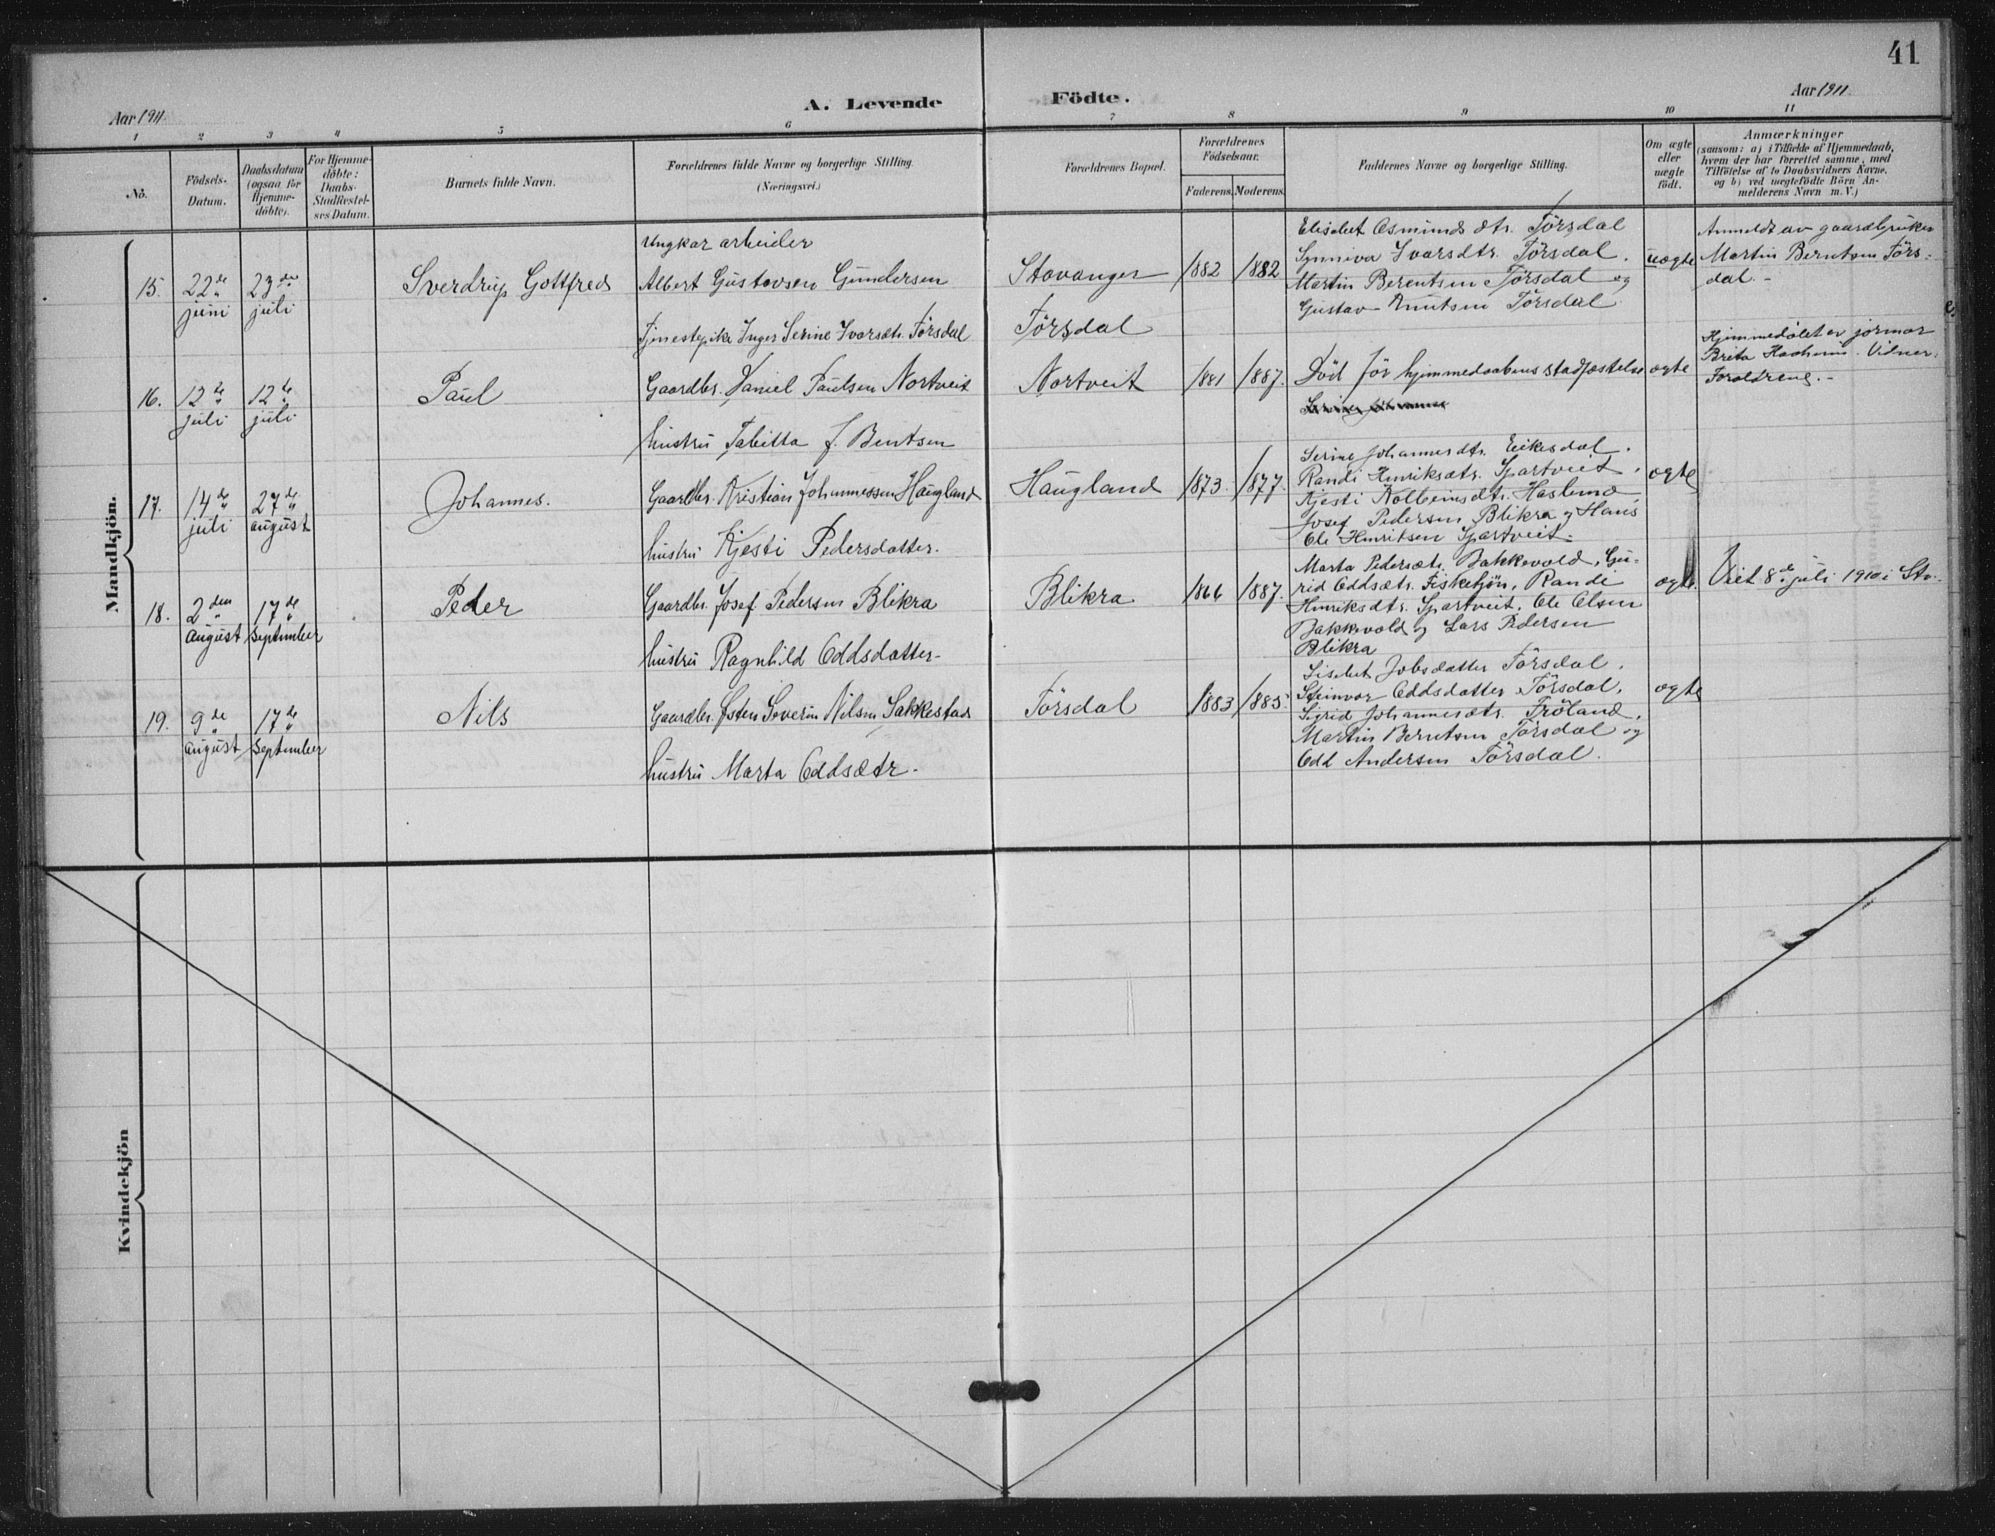 41
Aar 1911.
A. Levende Födte.
Aar 1911.
1 2 3 4 5 6 7 8 9 10 11
No.
Födsels-
Datum.
Daabsdatum
(ogsaa for
Hjemme-
döbte).
For Hjemme-
döbte:
Daabs-
Stadfæstel-
ses Datum.
Barnets fulde Navn.
Forældrenes fulde Navne og borgerlige Stilling.
(Næringsvei.)
Forældrenes Bopæl.
Forældrenes
Födselsaar.
Faderens. Moderens.
Faddernes Navne og borgerlige Stilling.
Om ægte
eller
uægte
födt.
Anmærkninger
(saasom: a) i Tilfælde af Hjemmedaab,
hvem der har forrettet samme, med
Tilföielse af to Daabsvidners Navne,
og b) ved uægtefödte Börn An-
melderens Navn m. V.)
Mandkjön.
15.
22de
juni
23de
juli
Sverdrup Gottfred
Ungkar arbeider
Albert Gustavsen Gundersen
Tjenestepike Inger Serine Ivarsdtr. Törsdal
Stavanger
Törsdal
1882 1882
Elisabet Asmundsdtr. Törsdal
Synniva Ivarsdtr. Törsdal.
Martin Berentsen Törsdal og
Gustav Knutsen Törsdal
uægte
Anmeldt av gaardbruker
Martin Berntsen Törs-
dal.-
16.
12te
juli
12te
juli
Paul
Gaardbr. Daniel Paulsen Nortveit
hustru Tabitta f. Bentsen
Nortveit
1881 1887.
Död för hjemmedaabens stadfæstelse
ægte
Hjemmedöbt av jormor
Brita . Vidner:
Foreldrene.-
17.
14de
juli
27de
august
Johannes.
Gaardbr. Kristian Johannessen Haugland
hustru Kjesti Pedersdatter.
Haugland
1873. 1877.
Serine Johannesdtr. Eikesdal.
Randi Henriksdtr. Spartveit,
Kjesti Kolbeinsdtr. Haslund,
Josef Pedersen Blikra og Hans
Ole Henriksen Spartveit.
ægte
18.
2den
august
17de
September
Peder
Gaardbr. Josef Pedersen Blikra
hustru Ragnhild Oddsdatter
Blikra
1866 1887.
Marta Pedersdtr. Bakkevold, Gu-
rid Oddsdtr. Fisketjön, Randi
Henriksdtr. Spartveit, Ole Olsen
Bakkevold og Lars Pedersen
Blikra
ægte.
Viet 8de juli 1910 i Stv.
19.
9de
august
17de
September
Nils
Gaardbr. Östen Severin Nilsen Sakkestad
hustru Marta Oddsdtr.
Törsdal
1883 1885.
Lisabet Jobsdatter Törsdal.
Steinvor Oddsdatter Törsdal,
Sigrid Johannesdtr. Fröland,
Martin Berntsen Törsdal og
Odd Andersen Törsdal.
ægte
Kvindekjön